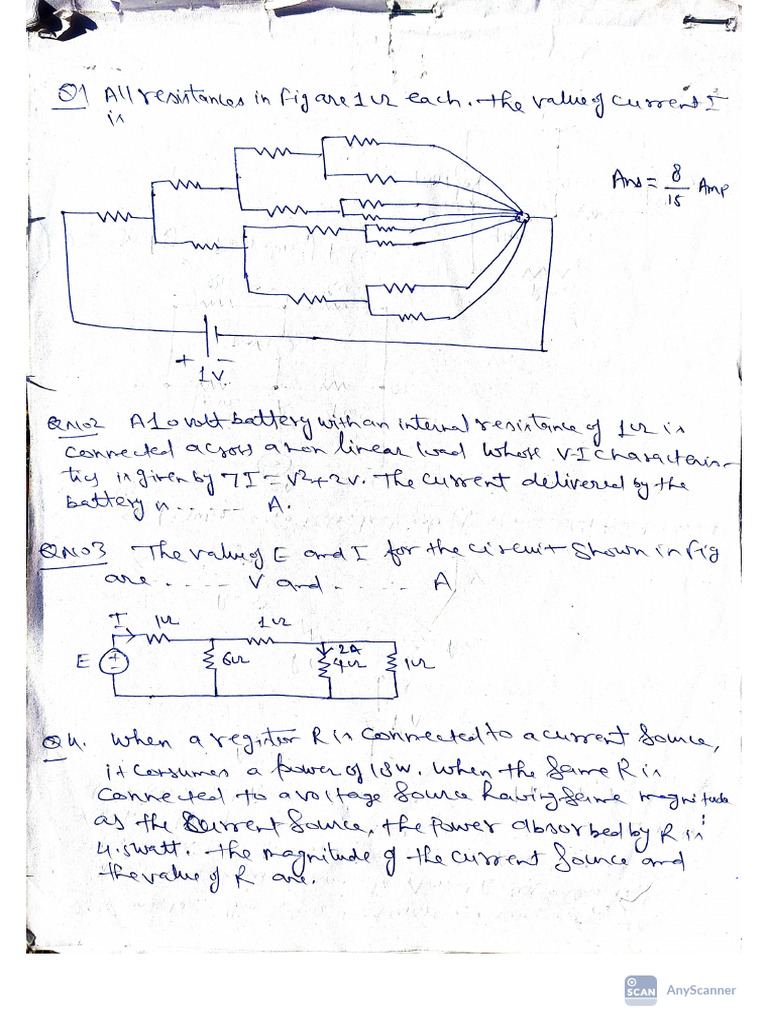 Q1 All resistances in fig are 1Ω each. The value of current I
is
Ans = 8/15 Amp
+ -
1V.
QNo2 A 10 volt battery with an internal resistance of 1Ω is
connected across a non linear load whose V-I characteris-
tics is given by 7I = V²+2V. The current delivered by the
battery is ........ A.
QNo3 The value of E and I for the circuit shown in fig
are ...... V and ...... A
I 1Ω 1Ω
E + - 6Ω 2A 4Ω 1Ω
Q4. When a register R is connected to a current source,
it consumes a power of 18W. When the same R is
connected to a voltage source having same magnitude
as the current source, the power absorbed by R is
4.5 watt. The magnitude of the current source and
the value of R are.
SCAN AnyScanner